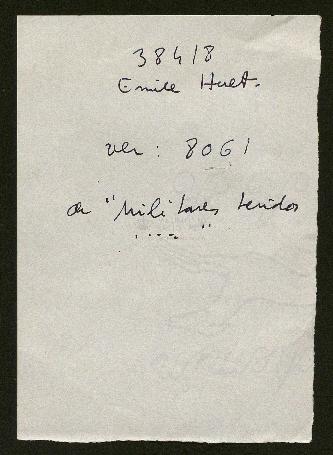 38418
Emile Huet.
ver: 8061
de "Militares tenidos
...."